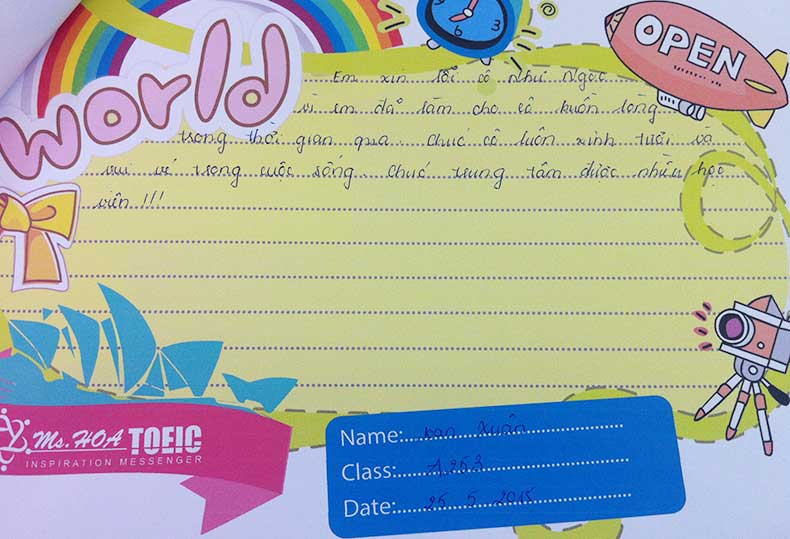 world
OPEN
6
3
Em xin lỗi cô Như Ngọc
vì em đã làm cho cô buồn lòng
trong thời gian qua. Chúc cô luôn xinh tươi và
vui vẻ trong cuộc sống. Chúc trung tâm được nhiều học
viên !!!
Ms.HOA TOEIC
INSPIRATION MESSENGER
Name: Xuân
Class: A253
Date: 25 5 2015